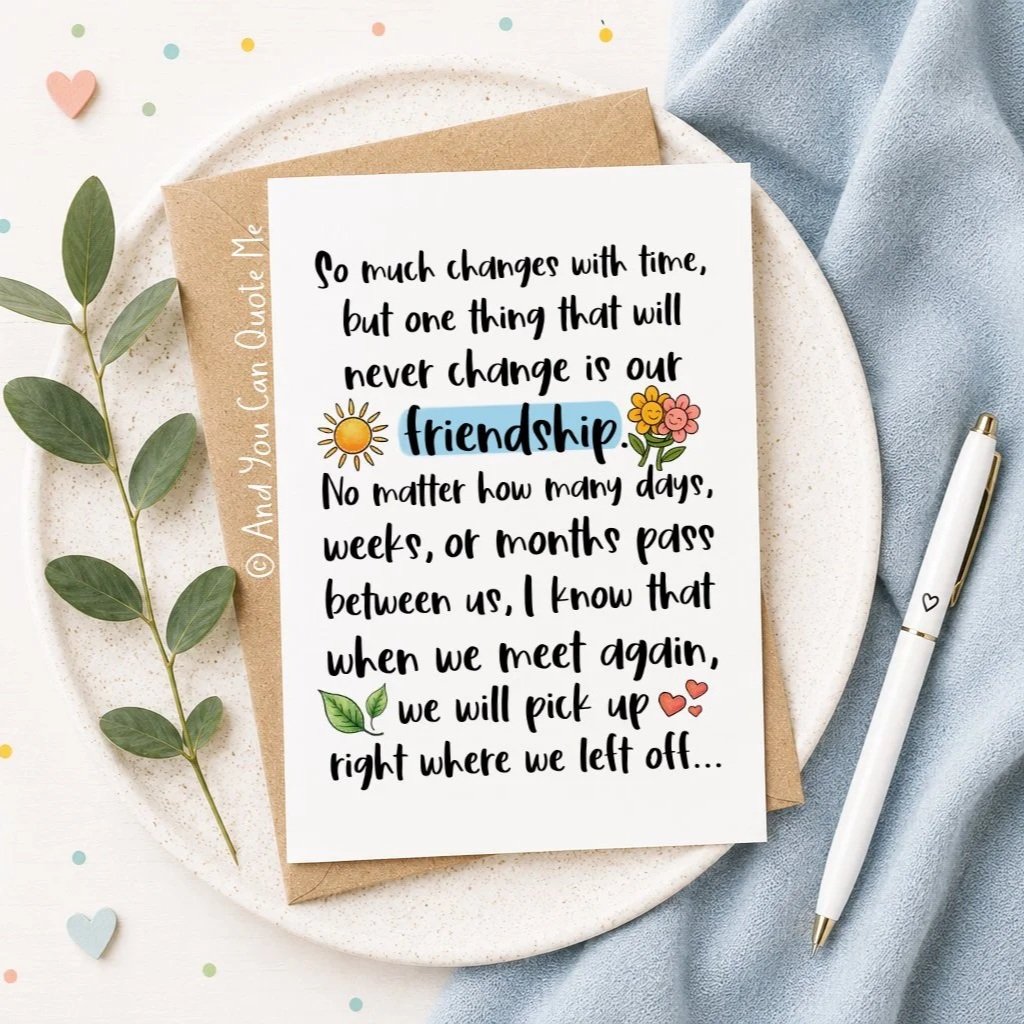 So much changes with time,
but one thing that will
never change is our
friendship.
No matter how many days,
weeks, or months pass
between us, I know that
when we meet again,
we will pick up
right where we left off...
© And You Can Quote Me